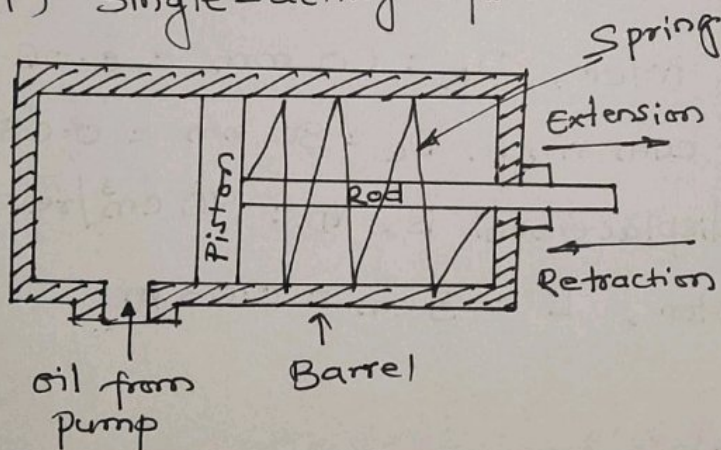 Single-acting
Spring
Extension
Piston
Rod
Retraction
Oil from
Pump
Barrel